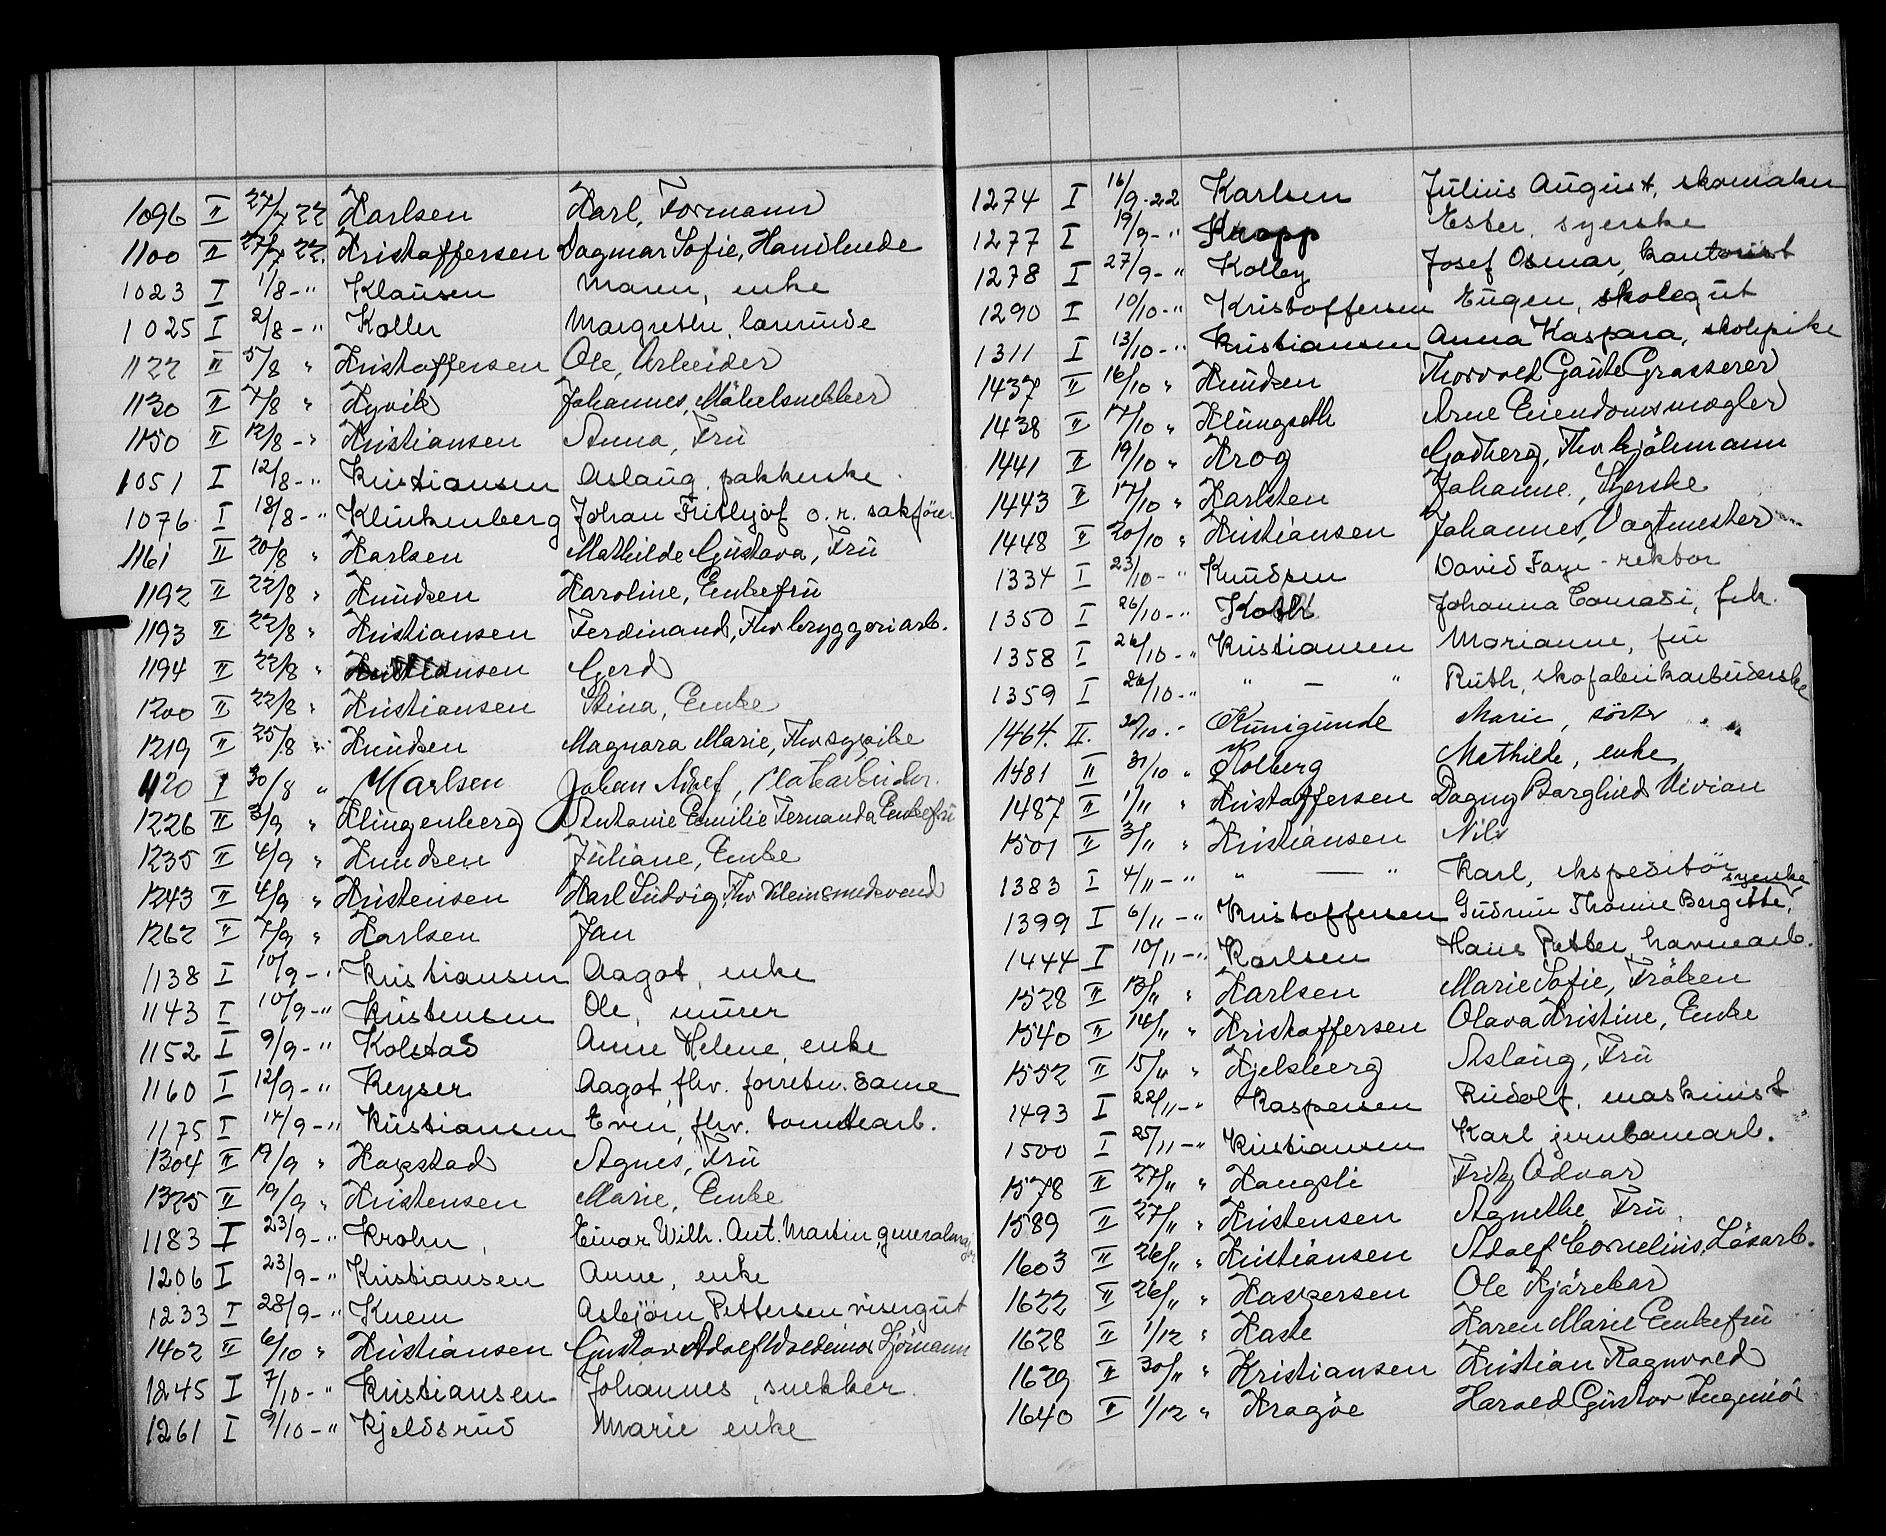 1096 II 27/7 22 Karlsen Karl, Formann
1100 II 27/7 22. Kristoffersen Dagmar Sofie, Handlende
1023 I 1/8 - " Klausen Maren, enke
1025 I 2/8 - " Koller Margrethe, lærerinde
1122 II 5/8 " Kristoffersen Ole, Arbeider
1130 II 7/8 " Kyvik Johannes, Möbelsnekker
1150 II 12/8 - " Kristiansen Anna, Fru
1051 I 12/8 - " Kristiansen Aslaug, pakkerske.
1076 I 18/8 - " Klinkenberg Johan Frithjof o.r. sakförer
1161 II 20/8 " Karlsen Mathilde Gustava, Fru
1192 II 22/8 " Knudsen Karoline, Enkefru
1193 II 22/8 " Kristiansen Ferdinand, Fhv bryggeriarb.
1194 II 22/8 " Kristiansen Gerd
1200 II 22/8 " Kristiansen Stina, Enke
1219 II 25/8 " Knudsen Magnara Marie, Fhv sypike
1120 I 30/8 " Karlsen Johan Adolf,
1226 II 3/9 " Klingenberg Antonie Emilie Fernanda Enkefru
1235 II 4/9 " Knudsen Juliane, Enke
1243 II 4/9 " Kristensen Karl Ludvig, Fhv Kleinsmedsvend
1262 II 7/9 " Karlsen Jan
1138 I 10/9 - " Kristiansen Aagot, enke
1143 I 10/9 - " Kristensen Ole, murer
1152 I 9/9 - " Kolstad Anne Helene, enke
1160 I 12/9 - " Keyser Aagot, fhv. forretn. dame
1175 I 14/9 - " Kristiansen Even, fhv. tomtearb.
1304 II 19/9 " Kopstad Agnes, Fru
1325 II 19/9 " Kristensen Marie, Enke
1183 I 23/9 - " Krohn, Einar Wilh. Ant. Martin, generalmajor
1206 I 23/9 - " Kristiansen Anne, enke
1233 I 28/9 - " Knem Asbjörn Pettersen visergut
1402 II 6/10 " Kristiansen Gustav Adolf Woldemar Sjömann
1245 I 7/10 - " Kristiansen Johannes, snekker.
1261 I 9/10 - " Kjeldsrud Marie enke
1274 I 16/9 - 22 Karlsen Julius August, skomaker
1277 I 19/9 - " Kropp Ester, syerske
1278 I 27/9 - " Kolley Josef Osmar, kontorist
1290 I 10/10 - " Kristoffersen Eugen, skolegut
1311 I 13/10 - " Kristiansen Anna Kaspara, skolepike
1437 II 16/10 " Knudsen Thorvald Gaute Grosserer
1438 II 17/10 " Klungseth Arne Eiendomsmægler
1441 II 19/10 " Krog Godberg, Fhv Sjömann
1443 II 17/10 " Karlsten Johanne, Syerske
1448 II 20/10 " Kristiansen Johannes, Vagtmester
1334 I 23/10 - " Knudsen David Faye - rektor
1350 I 26/10 - " Johanna Conradi, frk.
1358 I 26/10 - " Kristiansen Marianne, fru
1359 I 26/10 - " " — " Ruth, skofabrikarbeiderske
1464. II. 30/10 . - Kunigunde Marie, söster
1481 II 31/10 " Kolberg Mathilde, enke
1487 II 1/11 " Kristoffersen Dagny Borghild Vivian
1501 II 3/11 " Kristiansen Nils
1383 I 4/11 - " " — " Karl, ekspeditör
1399 I 6/11 - " Kristoffersen Gudrun Thomine Bergitte, syerske
1444 I 10/11 - " Karlsen Hans Petter, havnearb.
1528 II 13/11 " Karlsen Marie Sofie, Fröken
1540 II 14/11 " Kristoffersen Olava Kristine, Enke
1552 II 15/11 " Kjelsberg Aslaug, Fru
1493 I 22/11 - " Kaspersen Rudolf, maskinist
1500 I 25/11 - " Kristiansen Karl jernbanearb.
1578 II 27/11 " Kangsli Fritz Odvar
1589 II 27/11 " Kristensen Agnethe, Fru.
1603 II 26/11 " Kristiansen Adolf Cornelius, Lösarb.
1622 II 26/11 " Kaspersen Ole Kjörekar
1628 II 1/12 " Kaste Karen Marie Enkefru
1629 II 30/11 " Kristiansen Kristian Ragnvald
1640 II 1/12 " Kragöe Harald Gustav Ingeniör